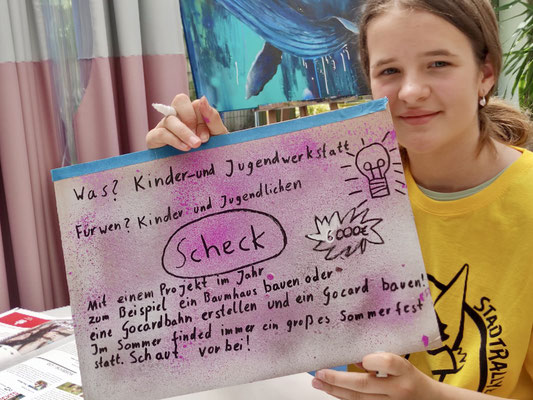 Was? Kinder-und Jugendwerkstatt
Für wen? Kinder und Jugendlichen
Scheck
6000€
Mit einem Projekt im Jahr
zum Beispiel ein Baumhaus bauen oder
eine Gocardbahn erstellen und ein Gocard bauen!
Im Sommer finded immer ein großes Sommerfest
statt. Schaut vorbei!
STADTRALLY